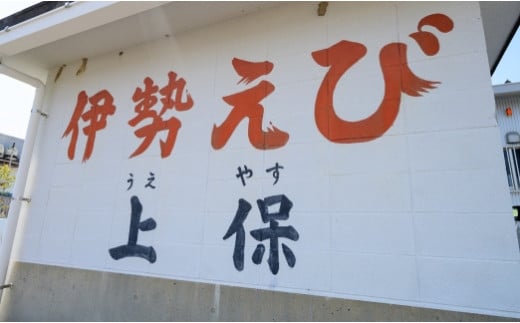 伊勢えび
うえ やす
上保